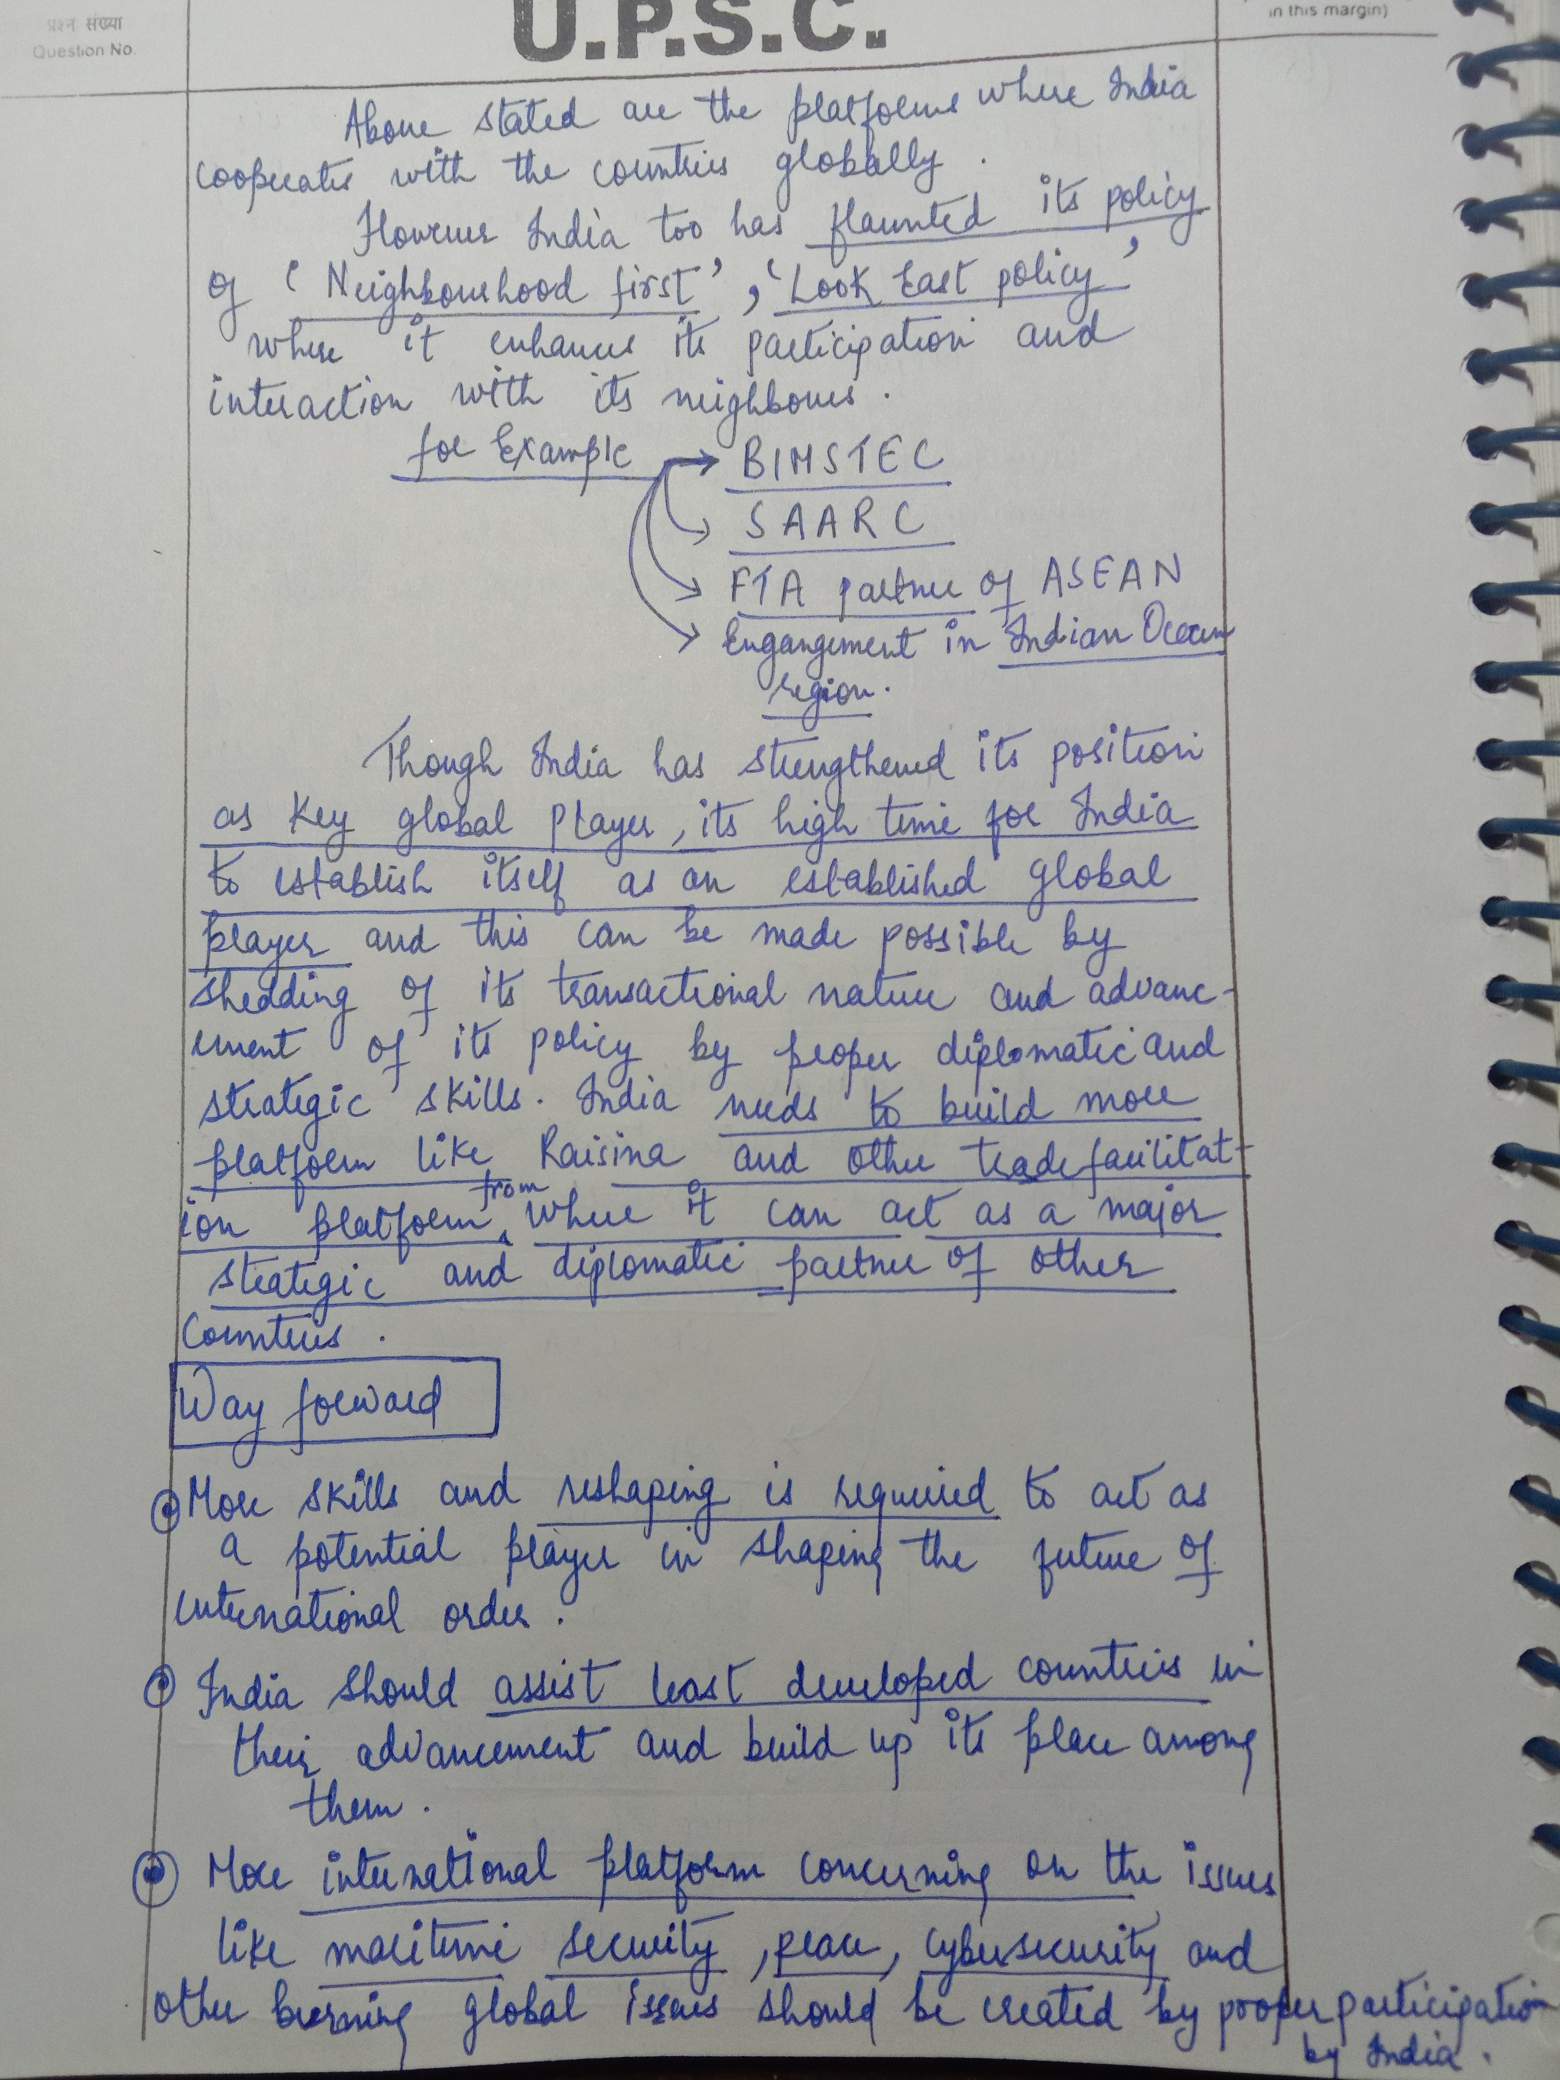 प्रश्न संख्या
Question No.
U.P.S.C.
in this margin)
Above stated are the platforms where India
cooperates with the countries globally.
However India too has flaunted its policy
of 'Neighbourhood first', 'Look East policy'
where it enhances its participation and
interaction with its neighbours.
for Example → BIMSTEC
→ SAARC
→ FTA partner of ASEAN
→ Engangement in Indian Ocean
region.
Though India has strengthened its position
as key global player, its high time for India
to establish itself as an established global
player and this can be made possible by
shedding of its transactional nature and advanc-
ement of its policy by proper diplomatic and
strategic skills. India needs to build more
platform like Raisina and other trade facilitat-
ion platform from where it can act as a major
strategic and diplomatic partner of other
countries.
Way forward
More skills and reshaping is required to act as
a potential player in shaping the future of
international order.
India should assist least developed countries in
their advancement and build up its place among
them.
More international platform concerning on the issues
like maritime security, peace, cybersecurity and
other burning global issues should be created by proper participation
by India.